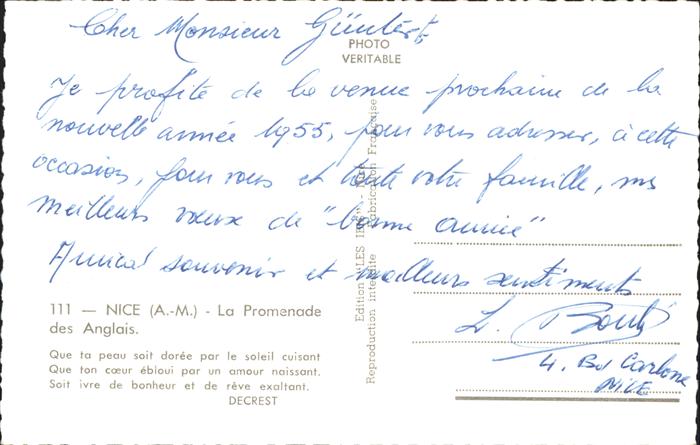 Cher Monsieur Güntert,
PHOTO
VERITABLE
Je profite de la venue prochaine de la
nouvelle année 1955, pour vous adresser, à cette
occasion, pour vous et toute votre famille, mes
meilleurs vœux de "bonne année"
Amical souvenir et meilleurs sentiments
L.
4. Bd Carlone
NICE
Edition "LES
Fabrication Française
Reproduction interdite
111 — NICE (A.-M.) - La Promenade
des Anglais.
Que ta peau soit dorée par le soleil cuisant
Que ton cœur ébloui par un amour naissant.
Soit ivre de bonheur et de rêve exaltant.
DECREST